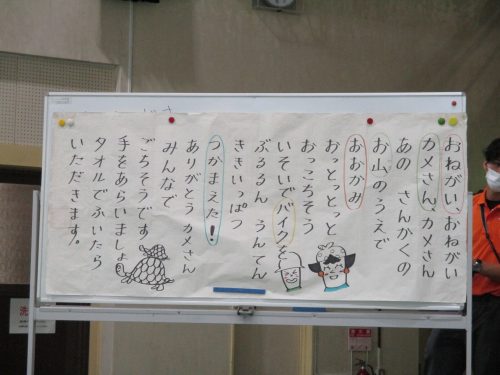 おねがい、おねがい
カメさん、カメさん
あの さんかくの
お山のうえで
おおかみ
おっとっとっと
おっこちそう
いそいでバイクで
ぶるるん うんてん
ききいっぱつ
つかまえた！
ありがとう カメさん
みんなで
ごちそうです
手をあらいましょ
タオルでふいたら
いただきます。